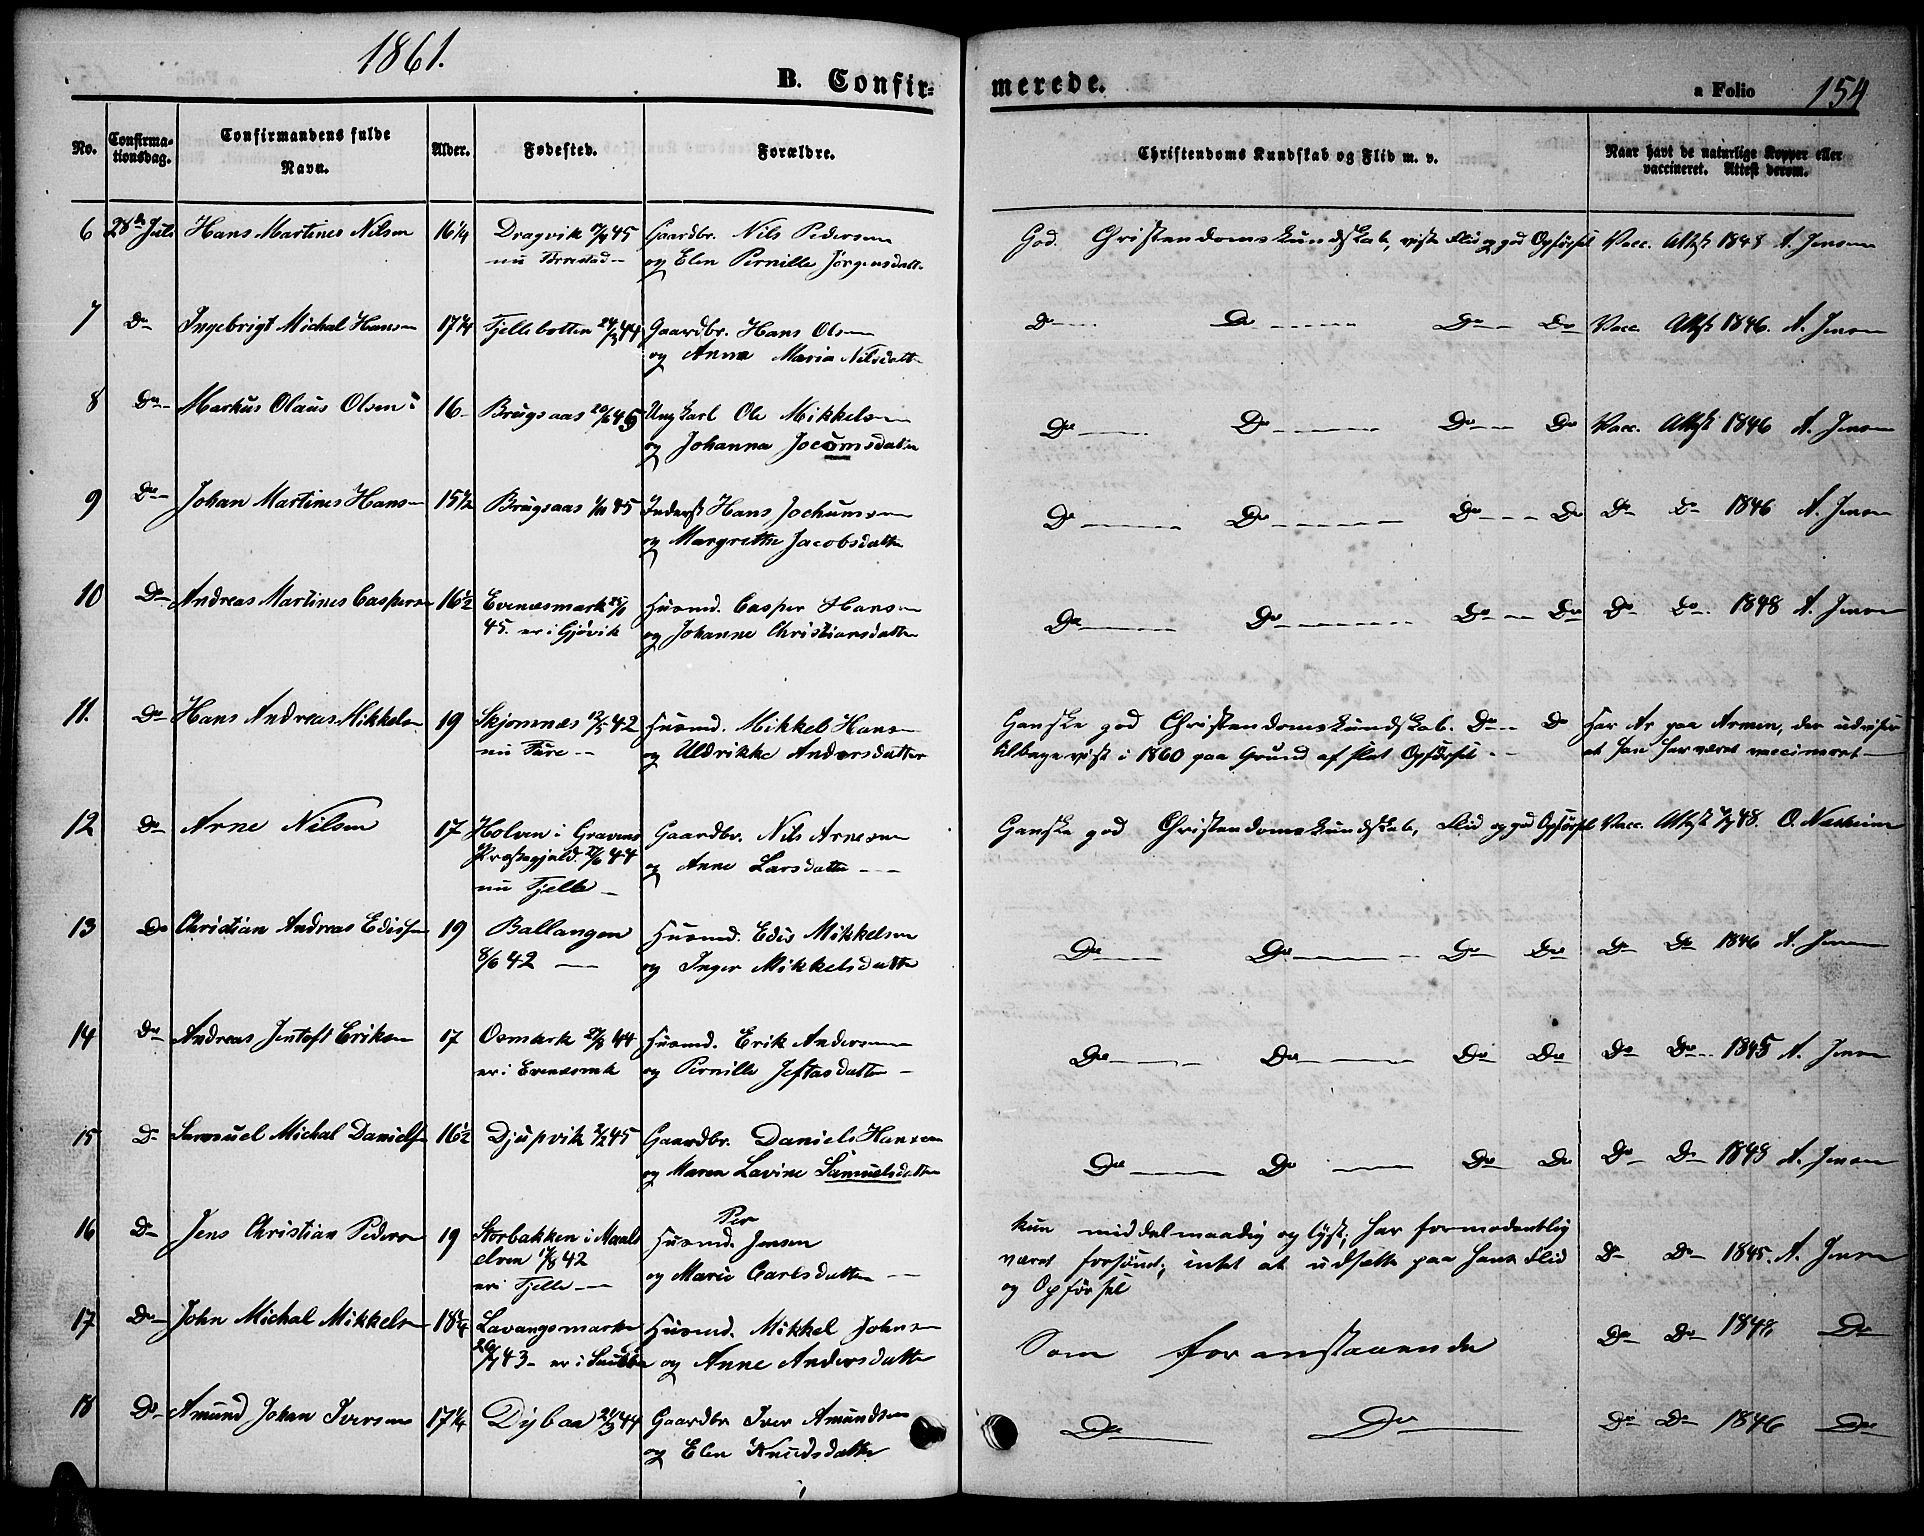 1861.
B. Confir=
merede.
a Folio 154
No.
Confirma-
tionsdag.
Confirmandens fulde
Navn.
Alder.
Fødested.
Forældre.
Christendoms Kundskab og Flid m. v.
Naar havt de naturlige Kopper eller
vaccineret. Attest derom.
6 28de Juli Hans Martines Nilsen 16 1/4 Dragvik 45 Gaardbr. Nils Pedersen God Christendomskundskab, vist Flid og gud Opførsel Vacc. Attest 1848 A. Jensen
nu og Elen Pernille Jørgensdatt.
7 Do Ingebrigt Michal Hansen 17 1/4 Fjellbotten 24/3 44 Gaardbr. Hans Olsen Do Do Do Do Vacc. Attest 1846. A. Jensen
og Anna Maria Nilsdatte
8 Do Markus Olaus Olsen 16 Brugsaas 20/6 45 Ungkarl Ole Mikkelsen Do Do Do Do Vacc. Attest 1846 A. Jensen
og Johanna Jocumsdatter
9 Do Johan Martines Hansen 15 1/2 Brugsaas 45 Inderst Hans Jochumsen Do Do Do Do Do Do 1846 A. Jensen
og Margrethe Jacobsdatter
10 Do Andreas Martines Caspersen 16 1/2 Evenæsmark 25/1 Huusmd. Casper Hansen Do Do Do Do Do Do 1848 A. Jensen
45. er i Gjøvik og Johanne Christiansdatter
11. Do Hans Andreas Mikkelsen 19 Skjomnæs 12/5 42 Huusmd. Mikkel Hansen Ganske god Christendomskundskab. Do Do Har Ar paa Armen, der udviser
nu og Uldrikke Andersdatter tilbagevist i 1860 paa Grund af slet Opførsel. at han har været vaccineret
12 Do Arne Nilsen 17 Holven i Gravens Gaardbr. Nils Arnesen Ganske god Christendomskundskab, Flid og gud Opførsel Vacc. Attest 48. O. Næsheim
Præstegjæld. 44 og Anne Larsdatter
nu Fjelle
13 Do Christian Andreas Edissen 19 Ballangen Huusmd. Edis Mikkelsen Do Do Do Do Do Do 1846 A. Jensen
8/6 42 og Inger Mikkelsdatter
14 Do Andreas Jentoft Eriksen 17 Osmark 44 Huusmd. Erik Andersen Do Do Do Do Do Do 1845 A. Jensen
er i Evenæsmk og Pernille Jeftasdatter
15 Do Samuel Michal Danielsen 16 1/2 Djupvik 2/2 45 Gaardbr. Daniel Hansen Do Do Do Do Do Do 1848 A. Jensen
og Maren Lavine Samuelsdatter
16 Do Jens Christian Pedersen 19 Storbakken i Maals Huusmd. Per Jensen kun middelmaadig oplyst; har formodentlig
elven 42 og Marie Carlsdatter været forsømt; intet at udsætte paa hans Flid Do Do 1845. A. Jensen
er i Fjelle og Opførsel
17 Do John Michal Mikkelsen 18 1/4 Lavangsmarken Huusmd. Mikkel Johnsen Som foranstaaende Do Do 1848 Do
43 er i og Anne Andersdatter
18 Do Amund Johan Iversen 17 1/4 Dybaa 21/3 44 Gaardbr Iver Amundsen Do Do Do Do 1846 Do
og Elen Knudsdatter